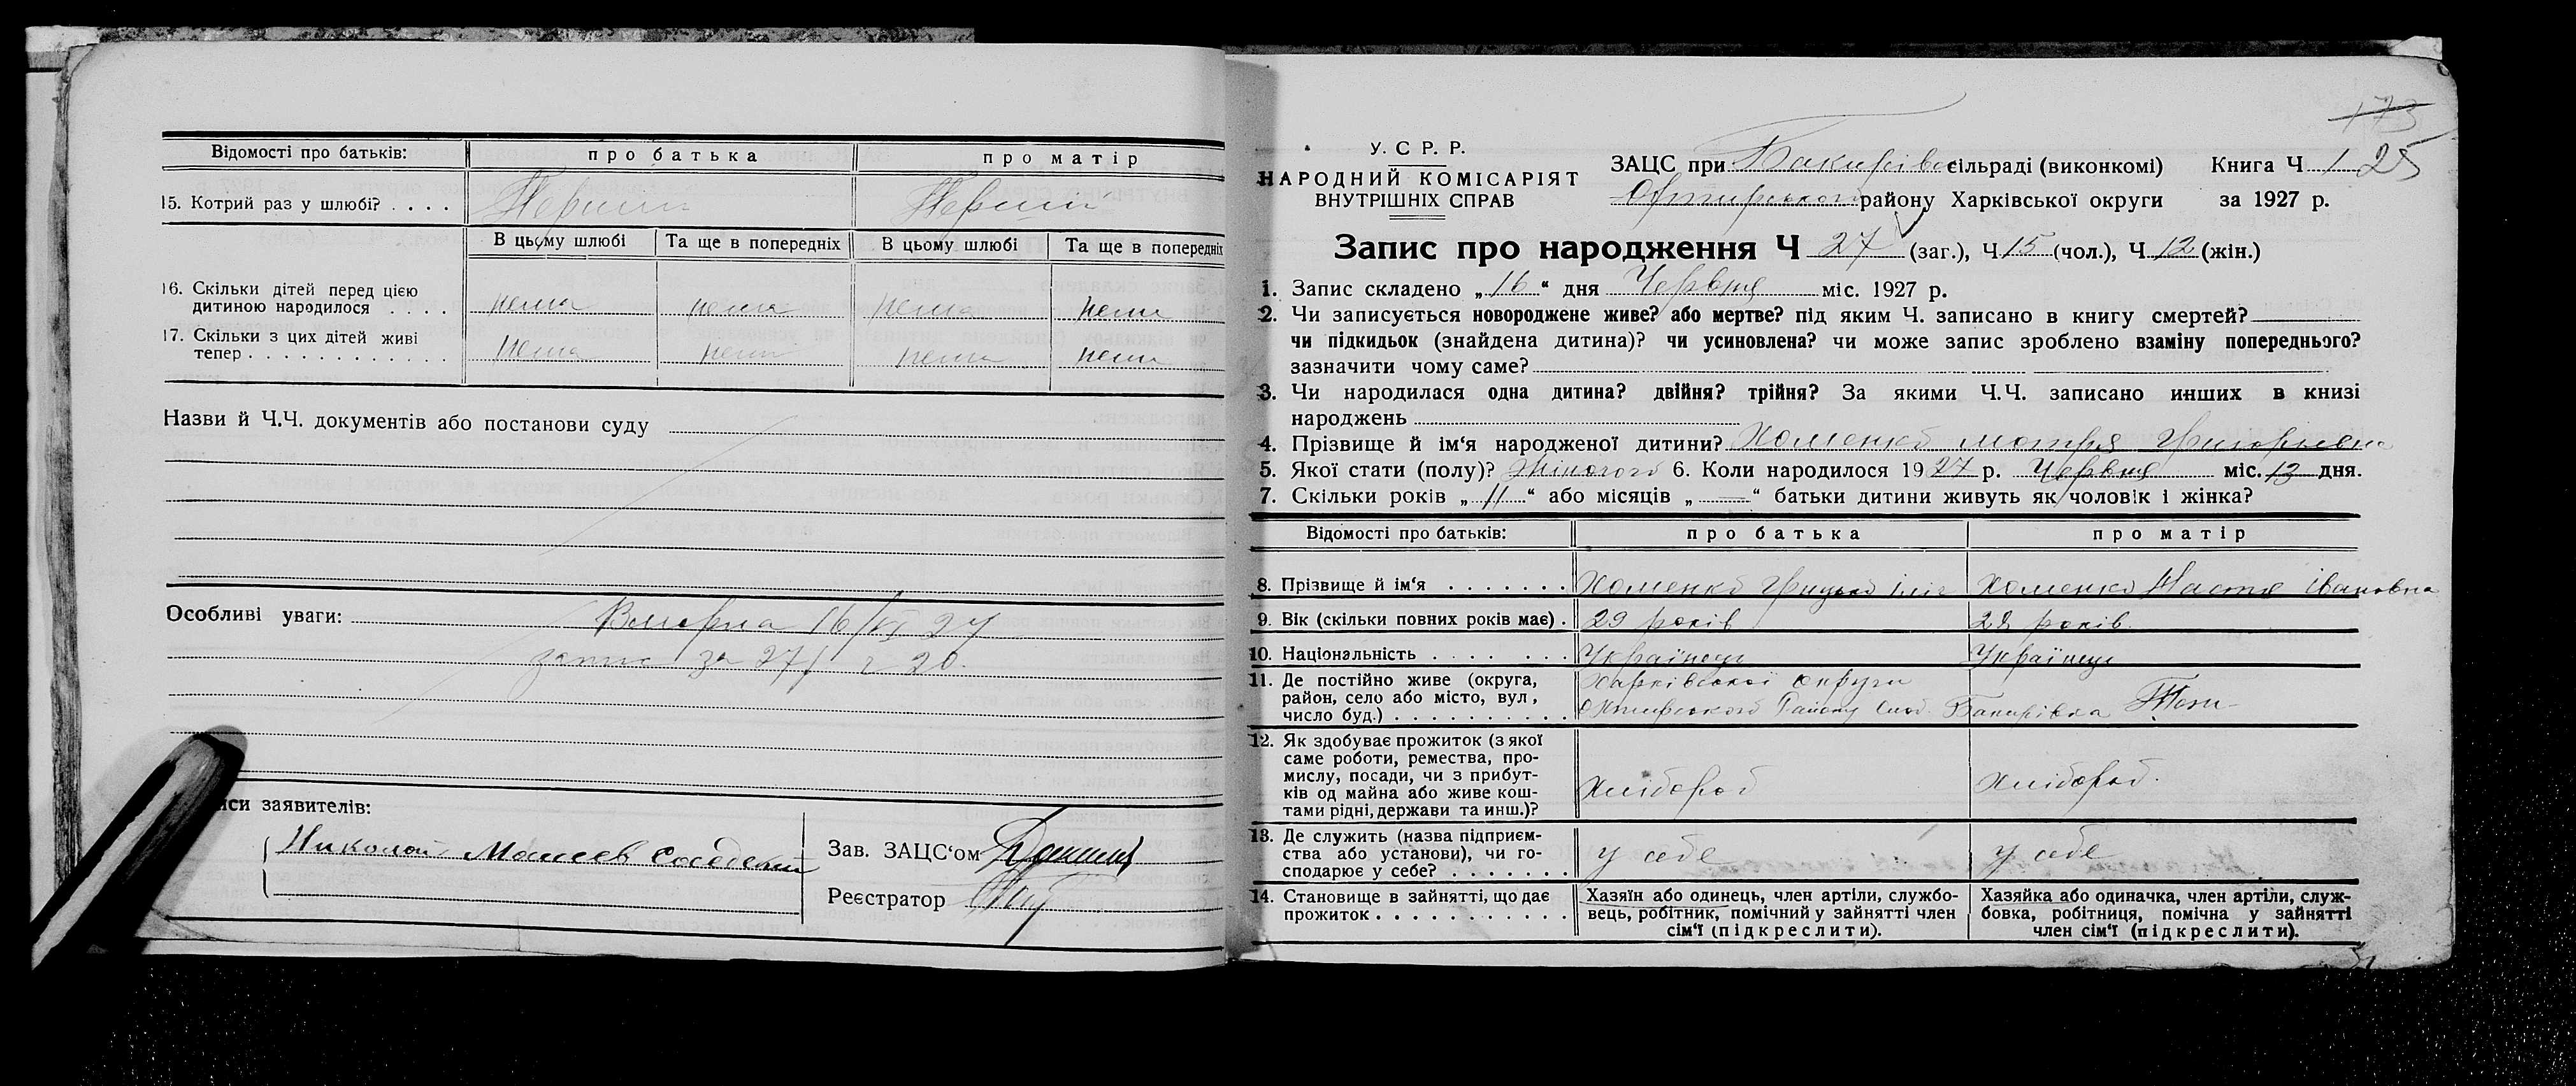 Відомості про батьків: про батька про матір
15. Котрий раз у шлюбі? . . . . Перший Перший
В цьому шлюбі Та ще в попередніх В цьому шлюбі Та ще в попередніх
16. Скільки дітей перед цією
дитиною народилося . . . . нема нема нема нема
17. Скільки з цих дітей живі
тепер . . . . . . . . . . . . . нема нема нема нема
Назви й Ч.Ч. документів або постанови суду
Особливі уваги: Вмерла 16/VI 27
запис за 27 г 20.
иси заявителів:
Николай Моисеев
Зав. ЗАЦС‘ом
Реєстратор
173
У. С Р. Р.
НАРОДНИЙ КОМІСАРІЯТ
ВНУТРІШНІХ СПРАВ
ЗАЦС при Бакирівс сільраді (виконкомі) Книга Ч 1 25
Охтирського району Харківської округи за 1927 р.
Запис про народження Ч 27 (заг.), Ч 15 (чол.), Ч 12 (жін.)
1. Запис складено „ 16 “ дня Червця міс. 1927 р.
2. Чи записується новороджене живе? або мертве? під яким Ч. записано в книгу смертей?
чи підкидьок (знайдена дитина)? чи усиновлена? чи може запис зроблено взаміну попереднього?
зазначити чому саме?
3. Чи народилася одна дитина? двійня? трійня? За якими Ч.Ч. записано инших в книзі
народжень
4. Прізвище й ім‘я народженої дитини? Хоменко Мотря Григорівна
5. Якої стати (полу)? Жіночого 6. Коли народилося 1927 р. Червця міс. 13 дня.
7. Скільки років „ 11 “ або місяців „ — “ батьки дитини живуть як чоловік і жінка?
Відомості про батьків: про батька про матір
8. Прізвище й ім‘я . . . . . . . Хоменко Грицько Ілів Хоменко Настя Івановна
9. Вік (скільки повних років має) . 29 років 28 років
10. Національність . . . . . . . Українець Українець
11. Де постійно живе (округа, Харківської округи
район, село або місто, вул.,
число буд.) . . . . . . . . . . . Охтирського Району Слоб. Бакирівка
12. Як здобуває прожиток (з якої
саме роботи, ремества, про-
мислу, посади, чи з прибут-
ків од майна або живе кош-
тами рідні, держави та инш.)? Хлібороб Хлібороб.
13. Де служить (назва підприєм-
ства або установи), чи го-
сподарює у себе? . . . . . . . у себе у себе
14. Становище в зайнятті, що дає Хазяїн або одинець, член артіли, службо- Хазяйка або одиначка, член артіли, служ-
прожиток . . . . . . . . . . . . вець, робітник, помічний у зайнятті член бовка, робітниця, помічна у зайнятті
сім‘ї (підкреслити). член сім‘ї (підкреслити).